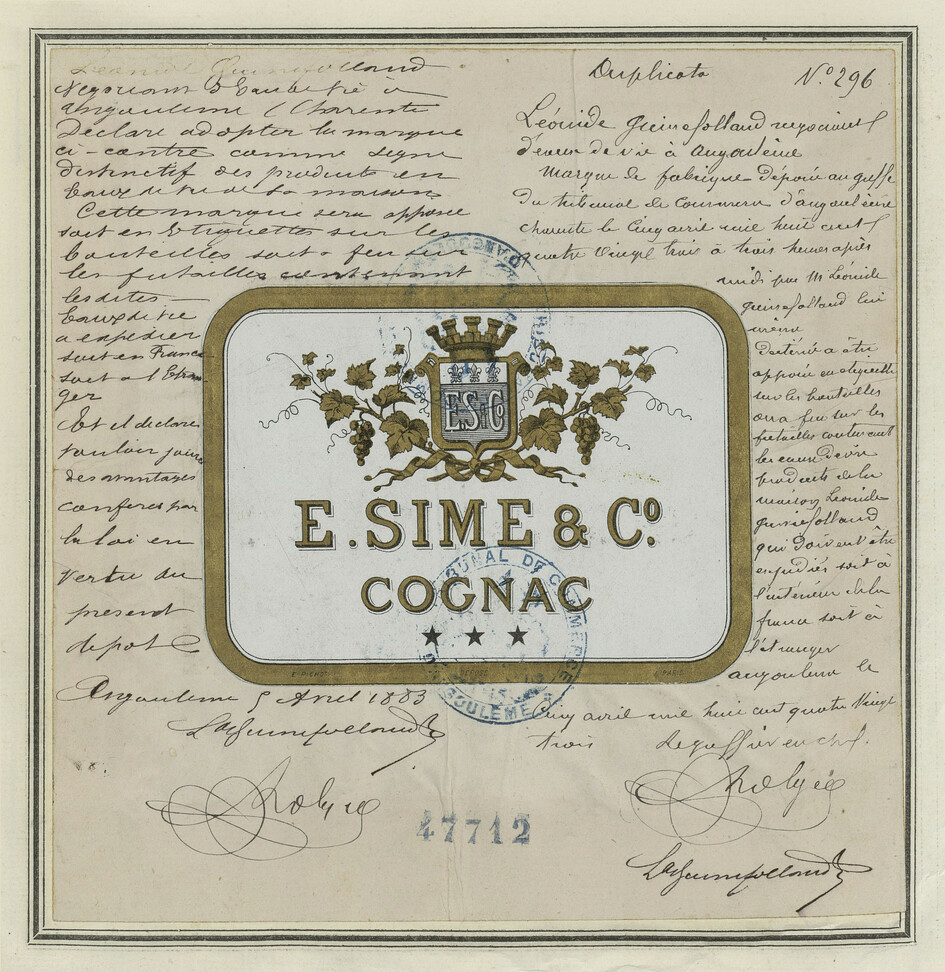 négociant d'Eaux de vie à
angoulême (Charente
Déclare adopter la marque
ci-contre comme signe
distinctif des produits en
Eaux de vie de sa maison
Cette marque sera apposée
soit en Etiquettes sur les
bouteilles soit a feu sur
les futailles contenant
les dites
Eaux de vie
a expédier
soit en France
soit a l'Etran-
ger
Et il declare
vouloir jouir
des avantages
conférés par
la loi en
vertu du
present
depot
Angoulême 5 Avril 1883
Duplicata
N° 296
Léonide négociant
d'eaux de vie à angoulême
Marque de fabrique déposée au greffe
du tribunal de commerce d'angoulême
quatre vingt trois à trois heures après
midi par M Léonide
lui
même
Destinée a être
apposée en étiquette
sur les bouteilles
ou a feu sur les
futailles contenant
les eaux de vie
produits de la
maison Léonide
qui doivent être
expédiés soit à
l'intérieur de la
france soit à
l'étranger
angoulême le
cinq avril mil huit cent quatre vingt
trois
E.S & Co
E. SIME & Co.
COGNAC
★ ★ ★
DÉPOSÉ
PARIS
TRIBUNAL DE COMMERCE
D'ANGOULEME
47712